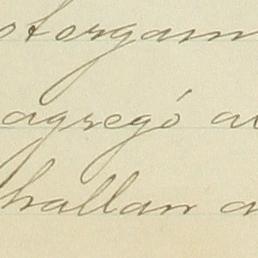 otorgam
agregó a
hallan a